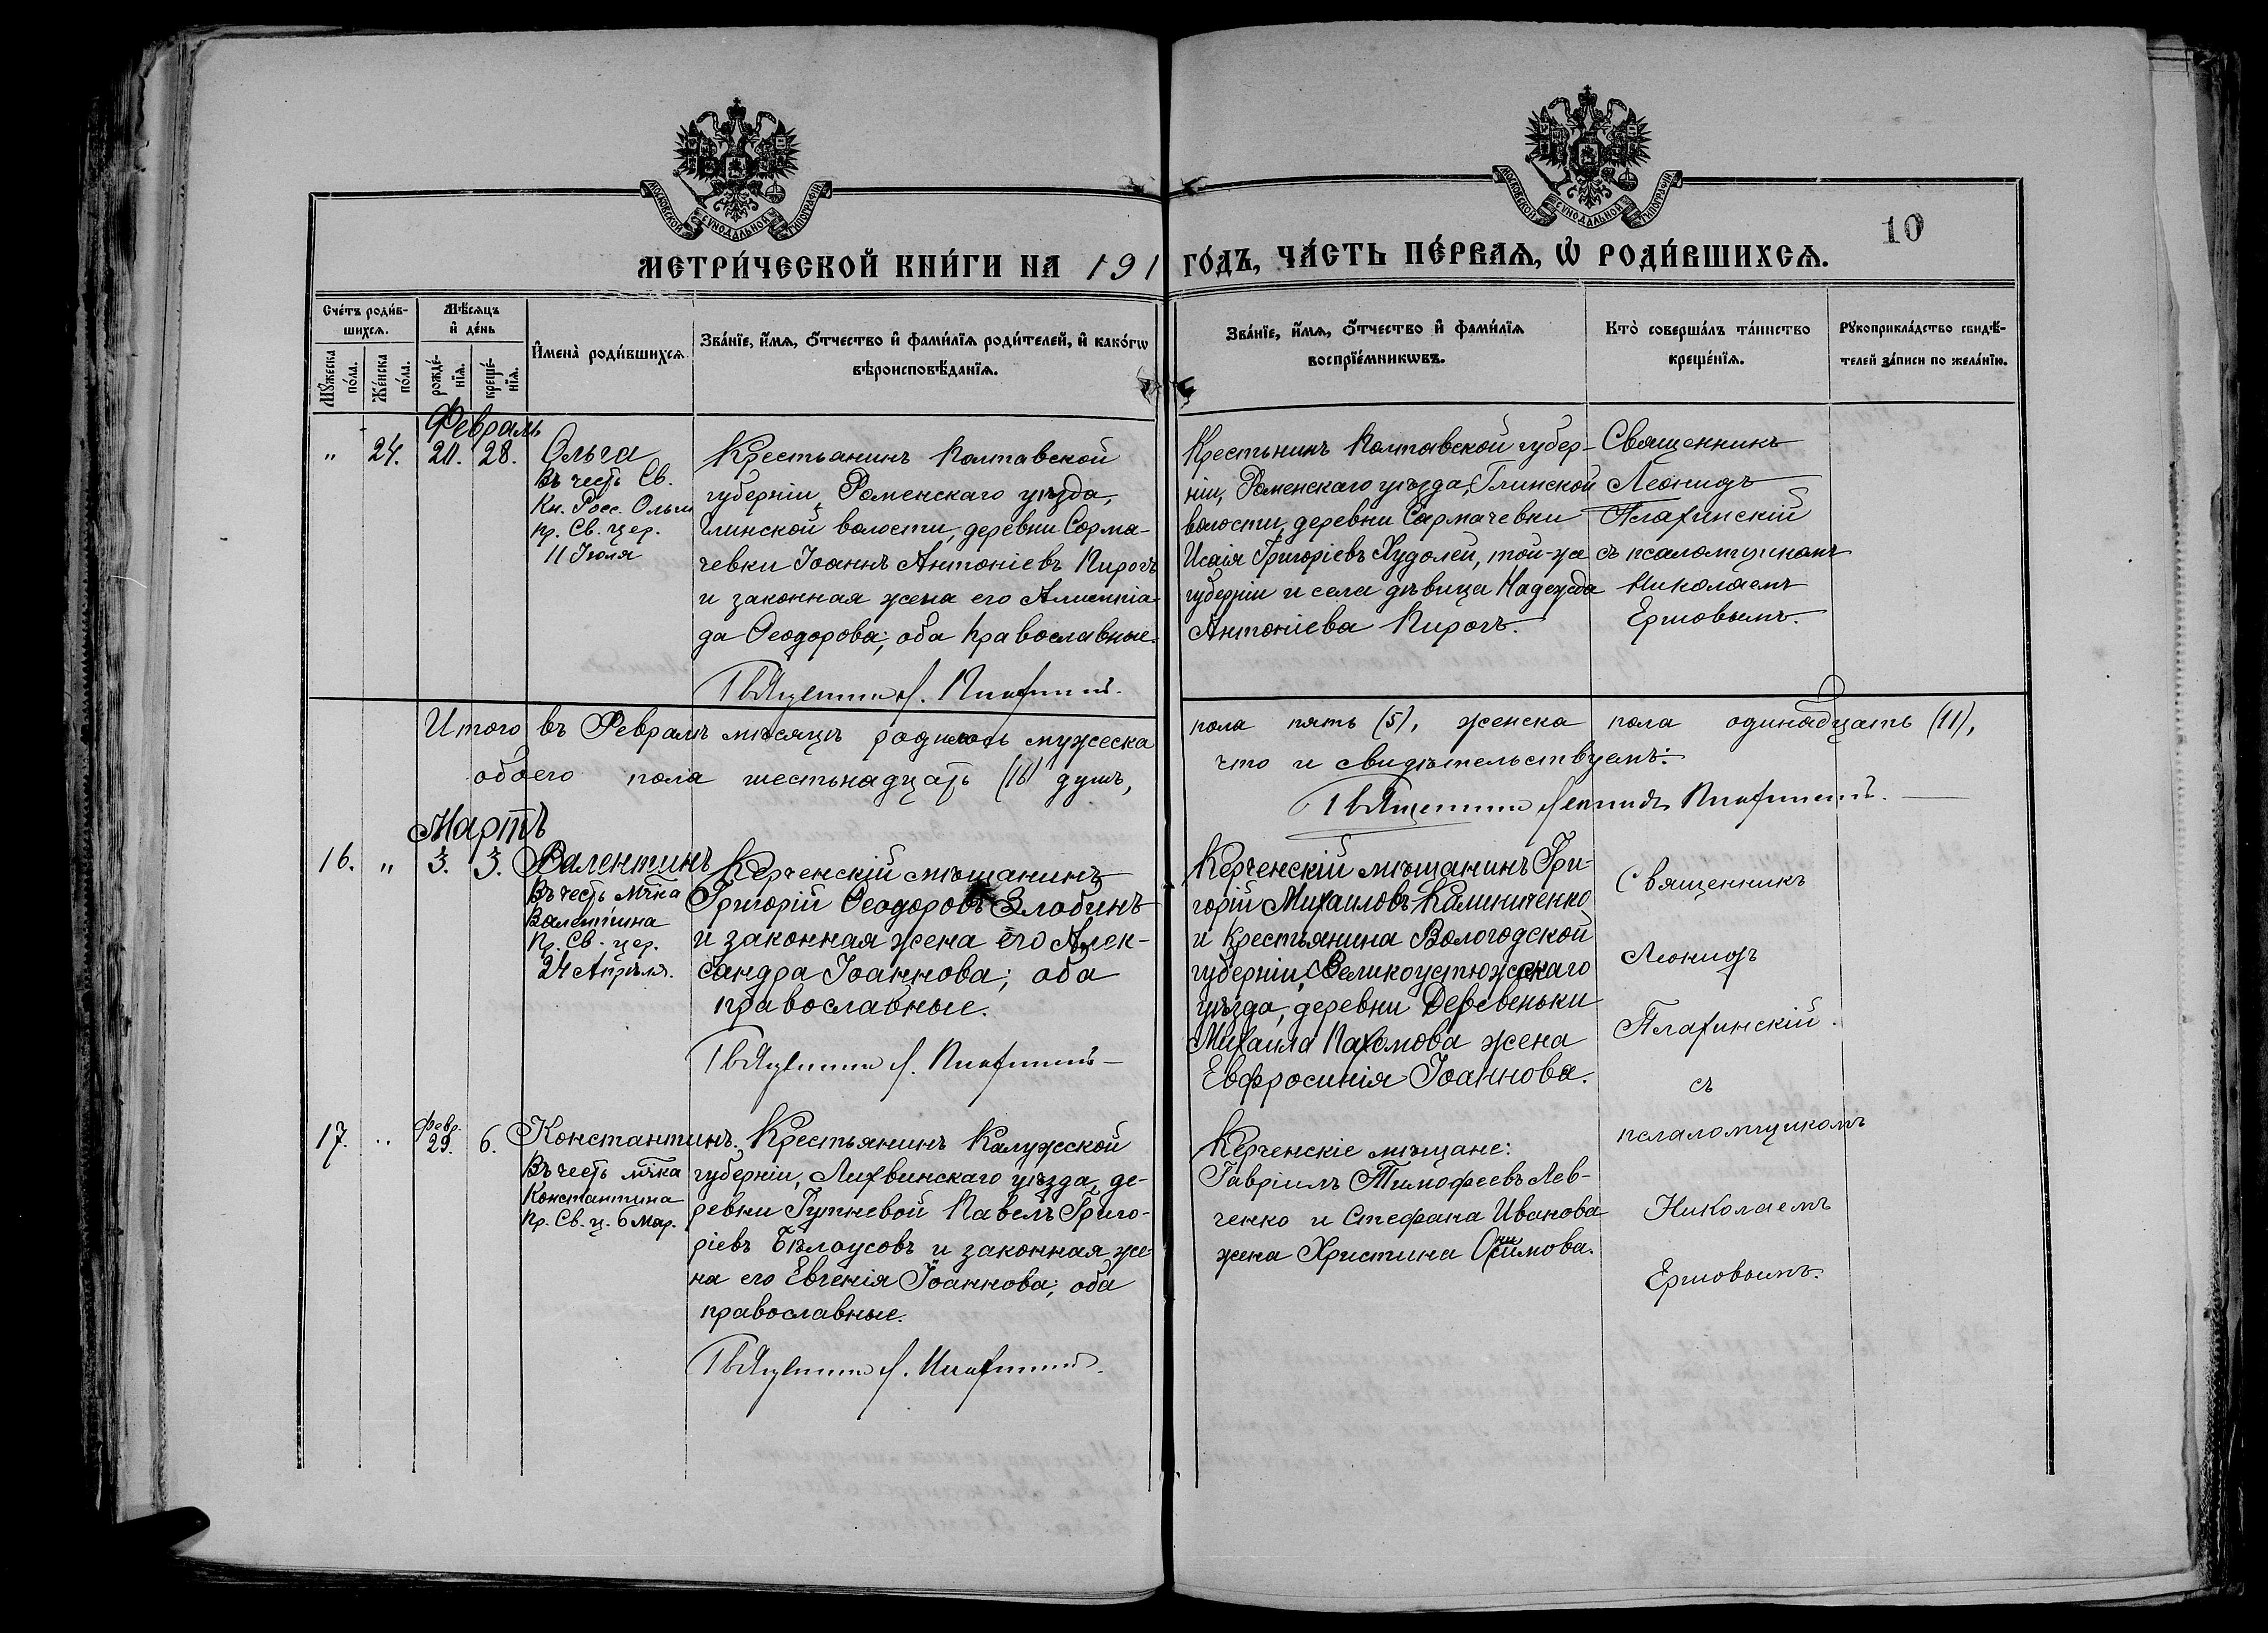 МОСКОВСКОЙ СУНОДАЛЬНОЙ ТИПОГРАФІИ
МОСКОВСКОЙ СУНОДАЛЬНОЙ ТИПОГРАФІИ
10
МЕТРИ́ЧЕСКОЙ КНИ́ГИ НА 191 ГО́ДЪ, ЧА́СТЬ ПЕ́РВАѦ, Ѡ҆ РОДИ́ВШИХСѦ.
Сче́тъ роди́в-
шихсѧ.
Мꙋ́жеска по́ла.
Же́нска по́ла.
Мѣ́сѧцъ
и҆ де́нь
рожде́-
нїѧ.
креще́-
нїѧ.
И҆мена̀ роди́вшихсѧ
Зва́нїе, и҆́мѧ, ѻ҆́тчество и҆ фами́лїѧ роди́телей, и҆ како́гѡ
вѣроисповѣ́данїѧ.
Зва́нїе, и҆́мѧ, ѻ҆́тчество и҆ фами́лїѧ
воспрїе́мникѡвъ.
Кто̀ соверша́лъ та́инство
креще́нїѧ.
Рꙋкоприкла́дство свидѣ́-
телей за́писи по жела́нїю.
Февраль
" 24. 28. Ольга
Въ честь Св.
Кн. Росс. Ольги
пр. Св. цер.
11 Іюля
Крестьанинъ Полтавской
губерніи, Роменскаго уѣзда,
Глинской волости, деревни Сорма-
чевки Іоаннъ Антоніевъ Пирогъ
и законная жена его Алимпіа-
да Ѳеодорова; оба православные.
Священникъ Л.
Крестьнинъ Полтавской губер-
ніи, Роменскаго уѣзда, Глинской
волости, деревни Сармачевки
Исаія Григоріевъ Худолей, той-же
губерніи и села дѣвица Надежда
Антоніева Пирогъ.
Священникъ
Леонидъ
Плахинскій
съ псаломщикомъ
Николаемъ
Ершовымъ.
Итого въ Февралѣ мѣсяцѣ родилось мужеска пола пять (5), женска пола одинадцать (11),
обоего пола шестьнадцать (16) душъ, что и свидѣтельствуемъ:
Священникъ Леонидъ Плахинскій.
Мартъ
16. " 3. 3. Валентинъ
Въ честь мч҃ка
Валентина
пр. Св. цер.
24 Апрѣля.
Керченскій мѣщанинъ
Григорій Ѳеодоровъ Злобинъ
и законная жена его Алек-
сандра Іоаннова; оба
православные.
Священникъ Л. Плахинскій
Керченскій мѣщанинъ Гри-
горій Михаиловъ Калиниченко
и крестьянина Вологодской
губерніи, Великоустюжскаго
уѣзда, деревни Деревеньки
Михаила Пахомова жена
Евфросинія Іоаннова.
Священникъ
Леонидъ
Плахинскій.
съ
псаломщикомъ
Николаемъ
Ершовымъ.
17. " Февр. 29. 6. Константинъ.
Въ честь мч҃ка
Константина
пр. Св. ц. 6 Мар.
Крестьянинъ Калужской
губерніи, Лихвинскаго уѣзда, де-
ревни Павелъ Григо-
ріевъ Бѣлоусовъ и законная же-
на его Евгенія Іоаннова; оба
православные.
Священникъ Л. Плахинскій.
Керченскіе мѣщане:
Гавріилъ Тимофеевъ Лев-
ченко и Стефана Иванова
жена Христина